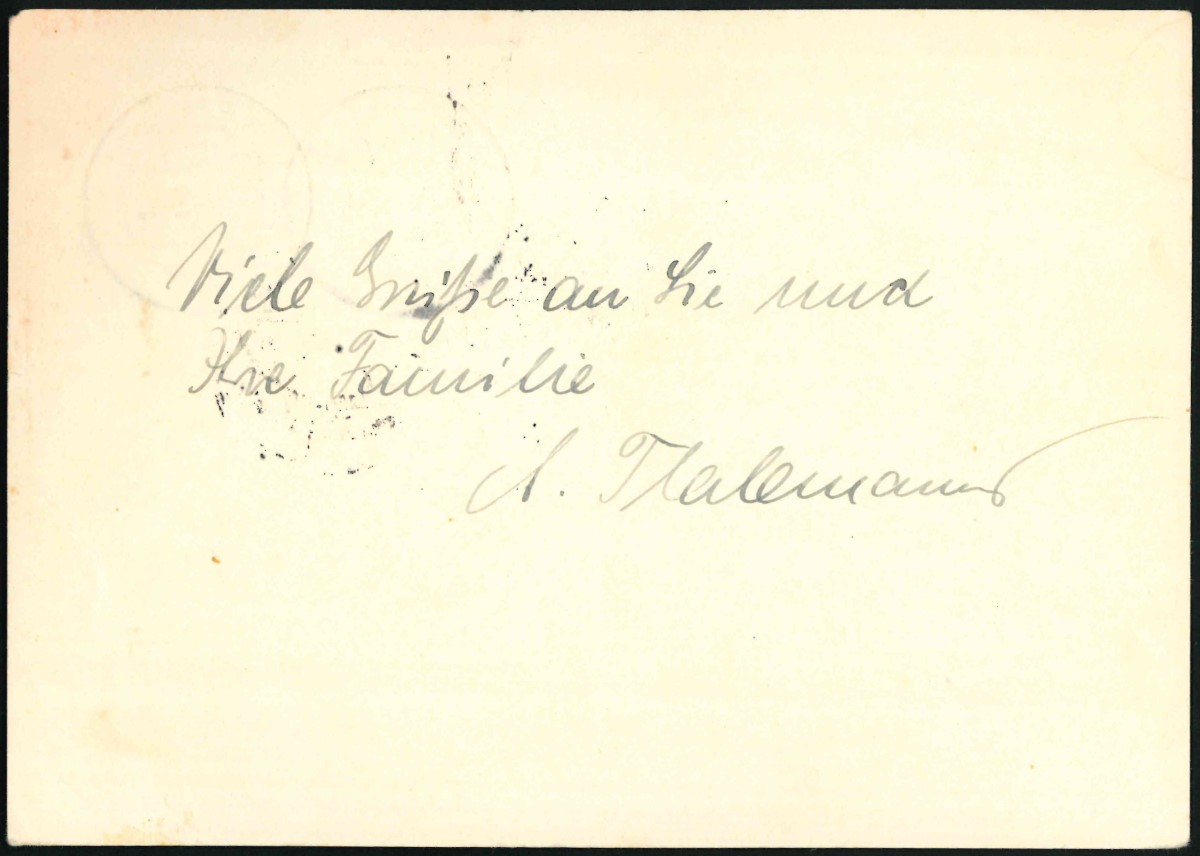 Viele Grüße an Sie und
Ihre Familie
A. Thalemann